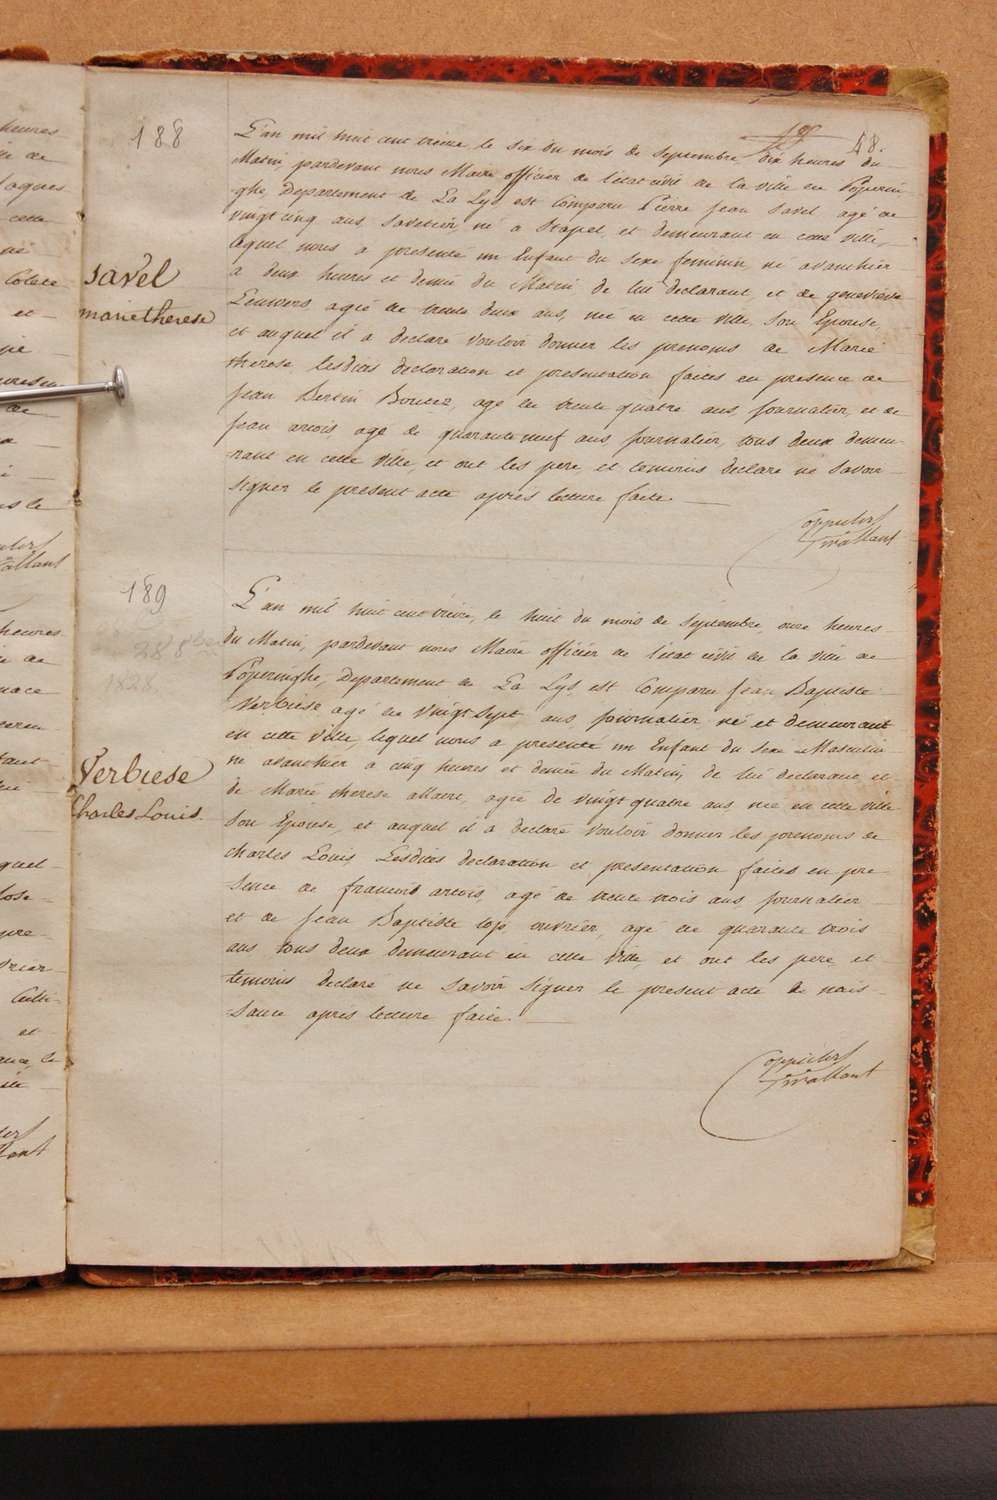 188
58.
L'an mil huit cent treize le six du mois de septembre dix heures du
Matin, pardevant nous Maire officier de l'etat civil de la ville de Poperin
ghe, Departement de La Lys est Comparu Pierre Jean Savel agé de
vingt cinq ans, savetier, né à Stapel, et demeurant en cette ville,
lequel nous a presenté un Enfant du sexe feminin, né avanthier
à deux heures et demie du Matin de lui declarant, et de genevieve
Leuwers agée de trente deux ans, née en cette ville, son Epouse,
et auquel il a declaré vouloir donner les prenoms de Marie
therese lesdites declaration et presentation faites en presence de
Jean Bertin Boutez, agé de trente quatre ans, journalier, et de
jean artois, agé de quarante neuf ans, journalier, tous deux demeu-
rant en cette ville, et ont les pere et temoins declaré ne savoir
signer le present acte après lecture faite.
Savel
marie therese
189
L'an mil huit cent treize, le huit du mois de septembre, onze heures
du Matin, pardevant nous Maire officier de l'etat civil de la ville de
Poperinghe, Departement de La Lys est Comparu Jean Baptiste
Verbiese agé de vingt sept ans journalier né et demeurant
en cette ville, lequel nous a presenté un Enfant du sexe Masculin
né avanthier à cinq heures et demie du Matin, de lui declarant et
de Marie therese allaert, agée de vingt quatre ans née en cette ville
son Epouse, et auquel il a declaré vouloir donner les prenoms de
charles Louis Lesdites declaration et presentation faites en pre
sence de francois artois, agé de trente trois ans, journalier
et de Jean Baptiste top ouvrier, agé de quarante trois
ans, tous deux demeurant en cette ville, et ont les pere et
temoins declaré ne savoir signer le present acte de nais-
sance après lecture faite.
288
1828
Verbiese
Charles Louis